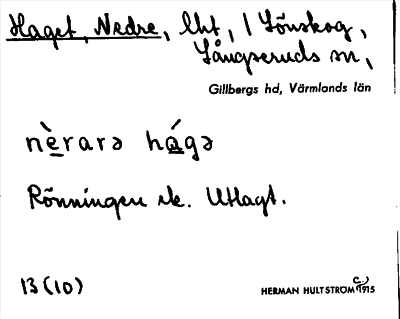 Haget, Nedre, lht, i Lönskog,
Långseruds sn,
Gillbergs hd, Värmlands län
nèrarə hágə
Rönningen ek. Utlagt.
13 (10)
HERMAN HULTSTRÖM C.) 1915